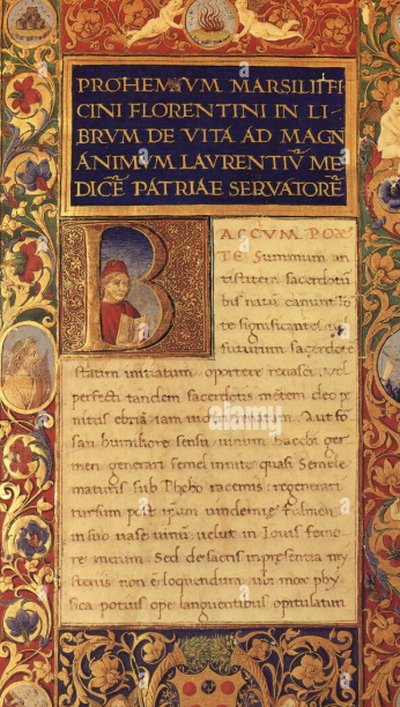 PROHEMIVM MARSILII FI
CINI FLORENTINI IN LI-
BRVM DE VITA AD MAGN
ÁNIMVM LAVRENTIṼ ME
DICẼ PATRIAE SERVATORẼ
BACCVM POE
TE Summum an
tistitem sacerdotũ
bis natũ canunt
te significantes
futurum sacerdote
statim initiatum oportere renasci. Vel
perfecti tandem sacerdotis mẽtem deo pe
nitus ebriã iam
san humiliore sensu vinum Bacchi ger
men generari semel in vite quasi Semele
maturis sub Phębo racemis: regenerari
rursum post ipsum vindemię fulmen
in suo vase vinũ velut in Iovis femo
re merum. Sed de sacris in presentia my
steriis non ẽ loquendum ubi mox phy
sica potius ope languentibus opitulaturi
alamy